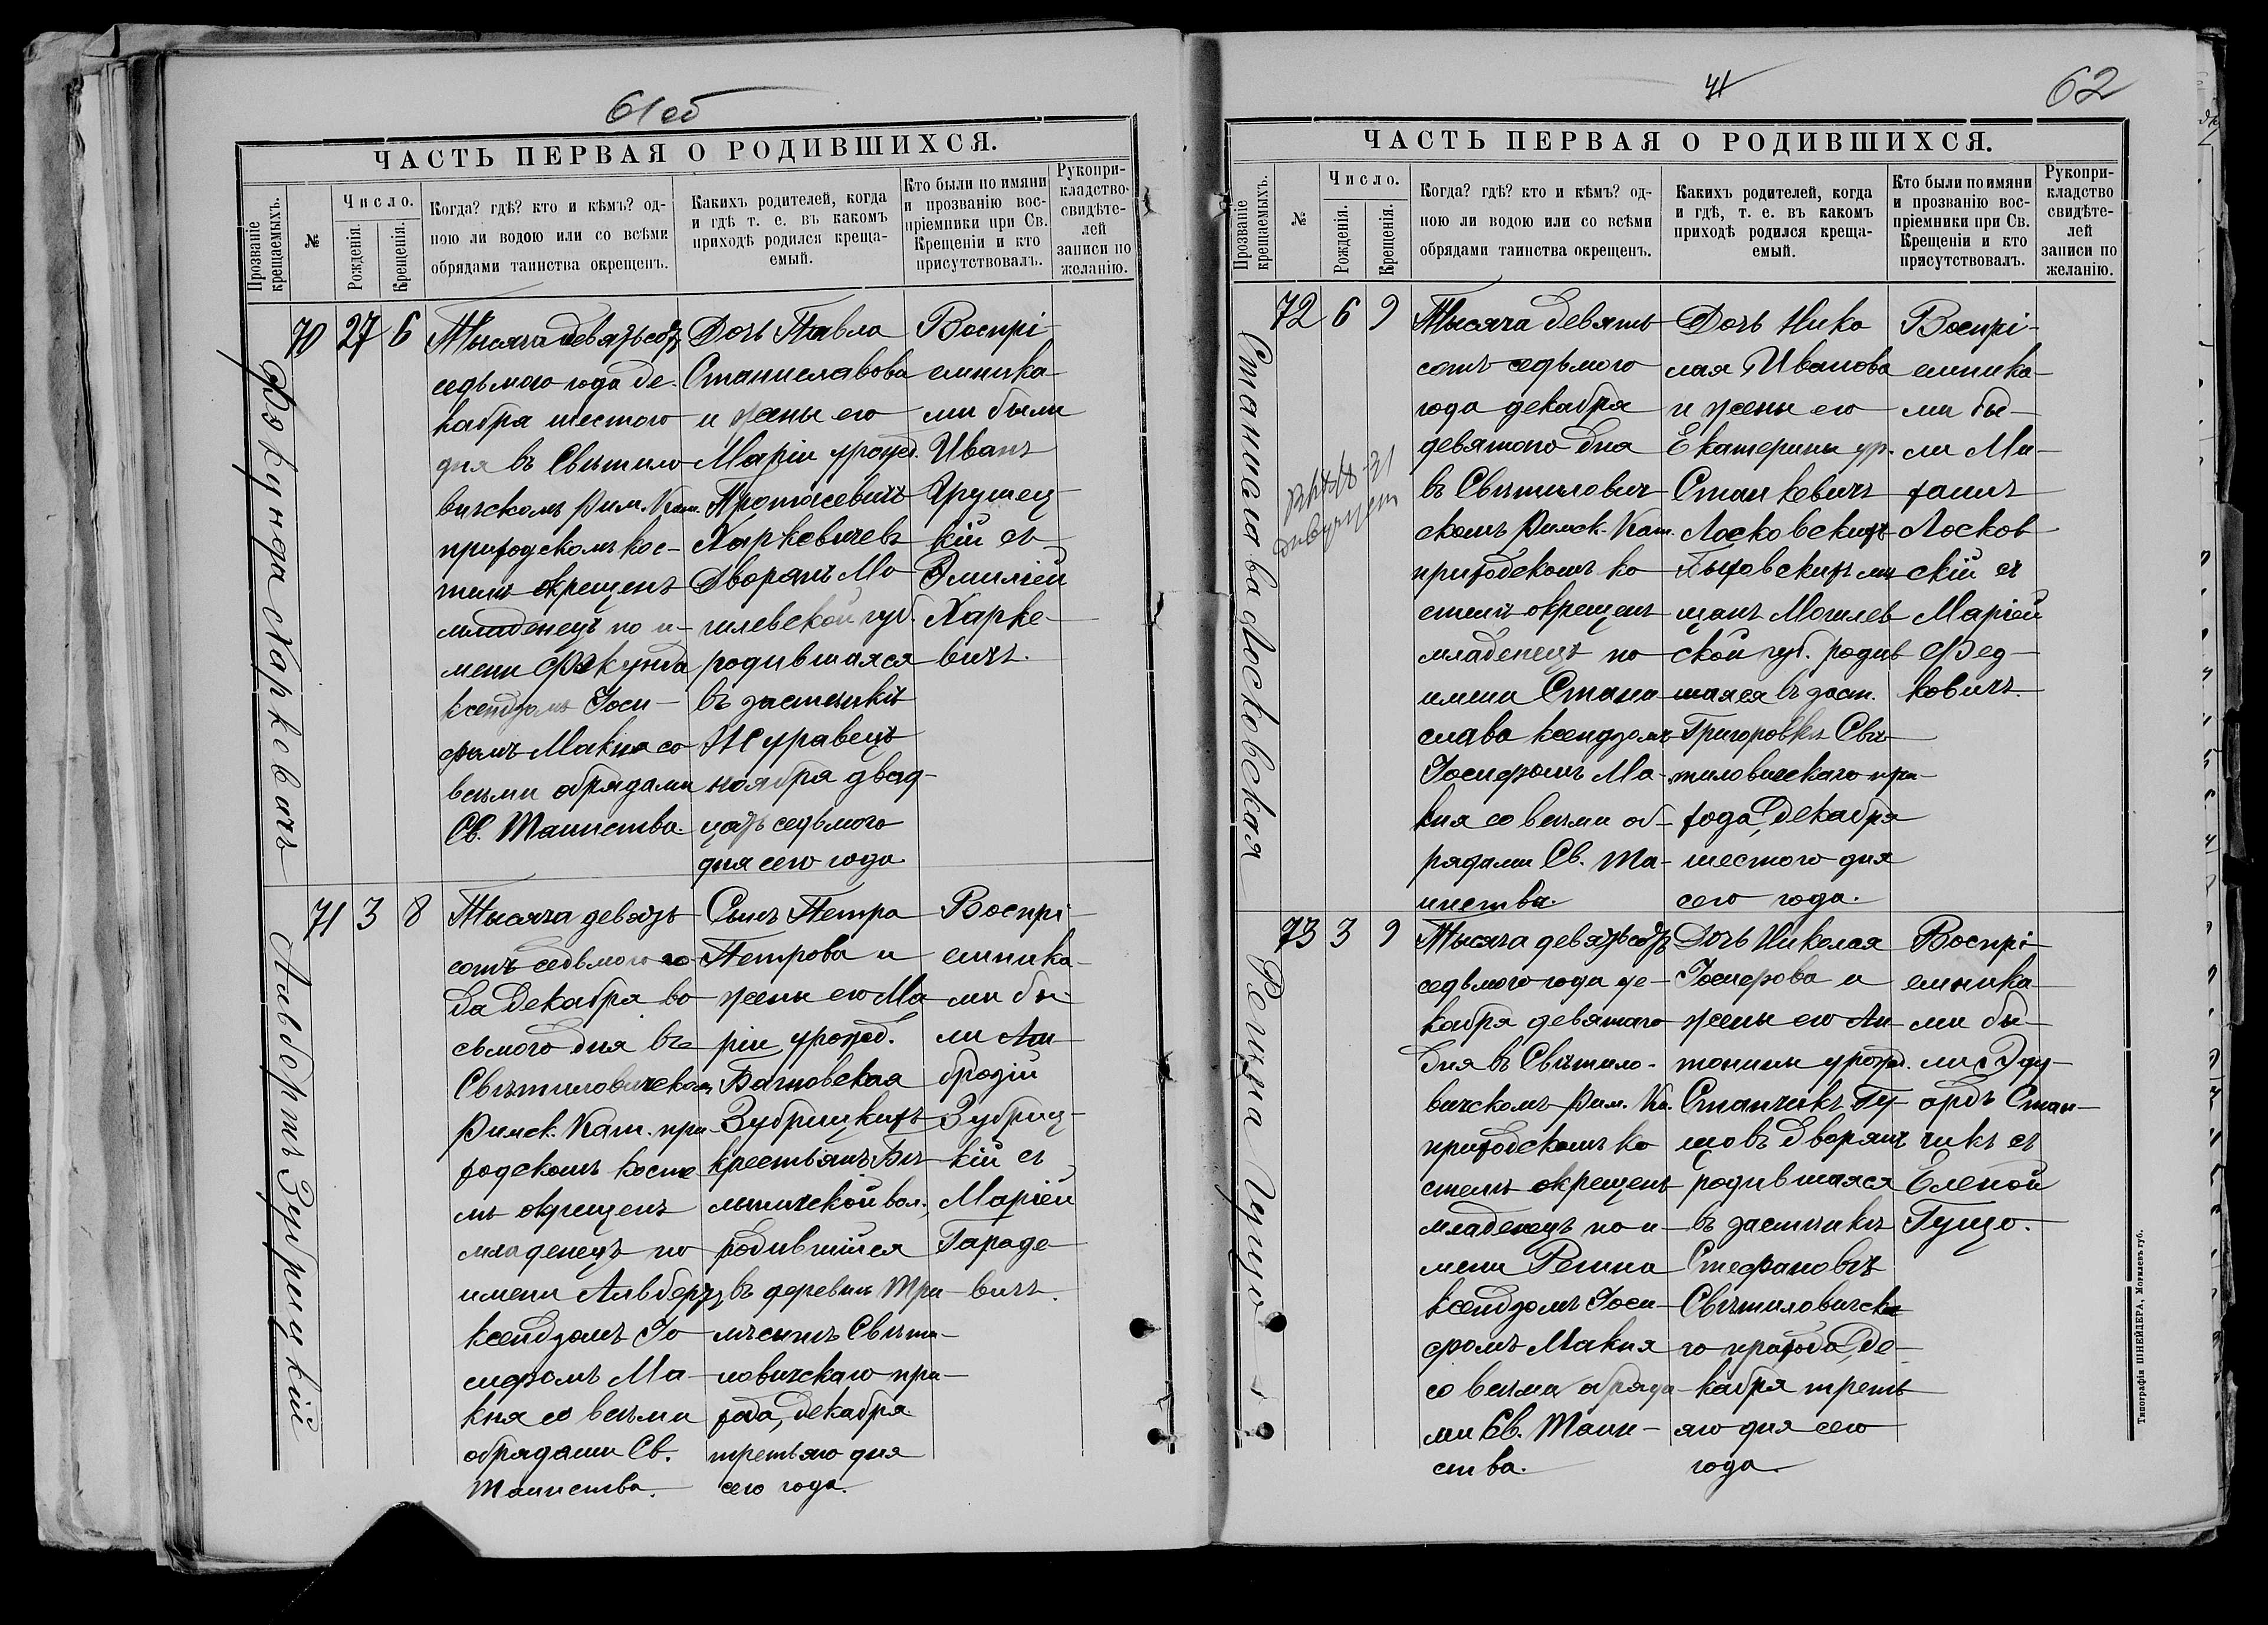 61 об
ЧАСТЬ ПЕРВАЯ О РОДИВШИХСЯ.
Прозваніе крещаемыхъ.
№
Число.
Рожденія.
Крещенія.
Когда? гдѣ? кто и кѣмъ? од-
ною ли водою или со всѣми
обрядами таинства окрещенъ.
Какихъ родителей, когда
и гдѣ т. е. въ какомъ
приходѣ родился креща-
емый.
Кто были по имяни
и прозванію вос-
пріемники при Св.
Крещеніи и кто
присутствовалъ.
Рукопри-
кладство
свидѣте-
лей
записи по
желанію.
Факунда Харкевичъ
70
27
6
Тысяча девятьсотъ
седьмого года де-
кабря шестого
дня въ Свѣтило
вичскомъ Рим. Кат.
приходскомъ кос-
телѣ окрещенъ
младенецъ по и-
мени Факунда
ксендзомъ Іоси-
фомъ Макня со
всѣми обрядами
Св. Таинства.
Дочь Павла
Станиславова
и жены его
Маріи урожд.
Протасевичъ
Харкевичевъ
дворянъ Мо
гилевской губ.
родившаяся
въ застѣнкѣ
Журавецъ
ноября двад-
цать седьмого
дня сего года
Воспрі-
емника-
ми были
Иванъ
Грушец-
кій съ
Эмиліей
Харке-
вичъ.
Альбертъ Зубрицкій
71
3
8
Тысяча девять
сотъ седьмого го-
да декабря во
сьмого дня въ
Свѣтиловичскомъ
Римск. Кат. при
ходскомъ косте
лѣ окрещенъ
младенецъ по
имени Альбертъ
ксендзомъ Іо
сифомъ Ма-
кня со всѣми
обрядами Св.
Таинства.
Сынъ Петра
Петрова и
жены его Ма
ріи урожд.
Багновская
Зубрицкихъ
крестьянъ Бѣ
лыничской вол.,
родившійся
въ деревнѣ Три
лѣсынѣ Свѣти-
ловичскаго при-
хода, декабря
третьяго дня
сего года.
Воспрі-
емника-
ми бы-
ли Ам
брозій
Зубриц-
кій съ
Маріей
Гараде-
вичъ.
62
ЧАСТЬ ПЕРВАЯ О РОДИВШИХСЯ.
Прозваніе крещаемыхъ.
№
Число.
Рожденія.
Крещенія.
Когда? гдѣ? кто и кѣмъ? од-
ною ли водою или со всѣми
обрядами таинства окрещенъ.
Какихъ родителей, когда
и гдѣ, т. е. въ какомъ
приходѣ родился креща-
емый.
Кто были по имяни
и прозванію вос-
пріемники при Св.
Крещеніи и кто
присутствовалъ.
Рукопри-
кладство
свидѣте-
лей
записи по
желанію.
Станислава Лосковская
72
6
9
Тысяча девять
сотъ седьмого
года декабря
девятого дня
въ Свѣтилович
скомъ Римск. Кат.
приходскомъ ко
стелѣ окрещенъ
младенецъ по
имени Стани
слава ксендзомъ
Іосифомъ Ма-
кня со всѣми об-
рядами Св. Та-
инства.
Дочь Нико
лая Иванова
и жены его
Екатерины ур.
Станкевичъ
Лосковскихъ
Быховскихъ мѣ
щанъ Могилев
ской губ. родив
шаяся въ заст.
Григоровкѣ Свѣ-
тиловичскаго при-
хода, декабря
шестого дня
сего года.
Воспрі-
емника-
ми бы-
ли Ми-
хаилъ
Лосков
скій съ
Маріей
Фед-
ковичъ.
Регина Гущо
73
3
9
Тысяча девятьсотъ
седьмого года де-
кабря девятаго
дня въ Свѣтило-
вичскомъ Рим. Ка.
приходскомъ ко
стелѣ окрещенъ
младенецъ по и-
мени Регина
ксендзомъ Іоси-
фомъ Макня
со всѣми обряда-
ми Св. Таин-
ства.
Дочь Николая
Іосифова и
жены его Ан
тонины урожд.
Станчикъ Гу-
щовъ дворянъ
родившаяся
въ застѣнкѣ
Стефановѣ
Свѣтиловичска
го прихода, де-
кабря треть-
яго дня сего
года
Воспрі-
емника-
ми бы-
ли Эду-
ардъ Стан-
чикъ съ
Еленой
Гущо.
Типографія ШНЕЙДЕРА, Могилевъ губ.